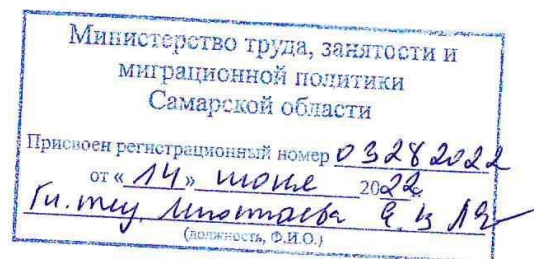 Министерство труда, занятости и
миграционной политики
Самарской области
Присвоен регистрационный номер 03282022
от « 14 » июня 2022г
(должность, Ф.И.О.)